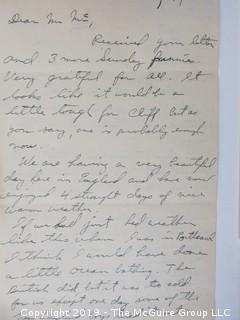 Dear Mr Mc,
Received your letter
and 3 more Sunday funnies.
Very grateful for all. It
looks like it would be a
little tough for Cliff but as
you say, one is probably enough
now.
We are having a very beautiful
day here in England and have now
enjoyed 4 straight days of nice
warm weather.
If we had just had weather
like this when I was in
I think I would have done
a little ocean bathing. The
British did but it was to cold
for us except one day some of the
Copyright 2019 - The Photographer